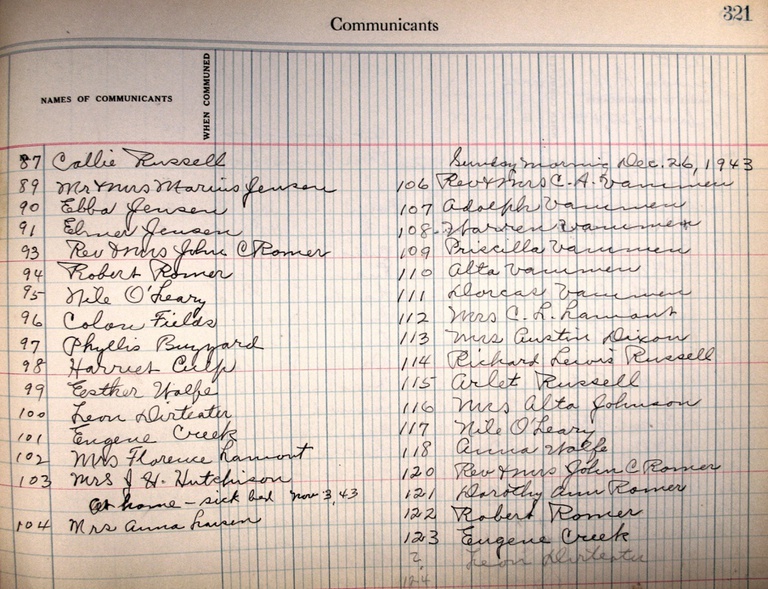 321
Communicants
NAMES OF COMMUNICANTS
WHEN COMMUNED
87 Callie Russell
89 Mr & Mrs Marius Jensen
90 Ebba Jensen
91 Elmer Jensen
93 Rev & Mrs John C Romer
94 Robert Romer
95 Nile O'Leary
96 Colon Fields
97 Phyllis Buzzard
98 Harriet Culp
99 Esther Wolfe
100 Leon Dirteater
101 Eugene Creek
102 Mrs Florence Lamont
103 Mrs J H. Hutchison
At home - sick bed Nov 3, 43
104 Mrs Anna Larsen
Sunday morning Dec. 26, 1943
106 Rev & Mrs C. A. Vammen
107 Adolph Vammen
108 Warren Vammen
109 Priscilla Vammen
110 Alta Vammen
111 Dorcas Vammen
112 Mrs C. L. Lamont
113 Mrs Austin Dixon
114 Richard Lewis Russell
115 Arlet Russell
116 Mrs Alta Johnson
117 Nile O'Leary
118 Anna Wolfe
120 Rev & Mrs John C Romer
121 Dorothy Ann Romer
122 Robert Romer
123 Eugene Creek
? Leon Dirteater
124